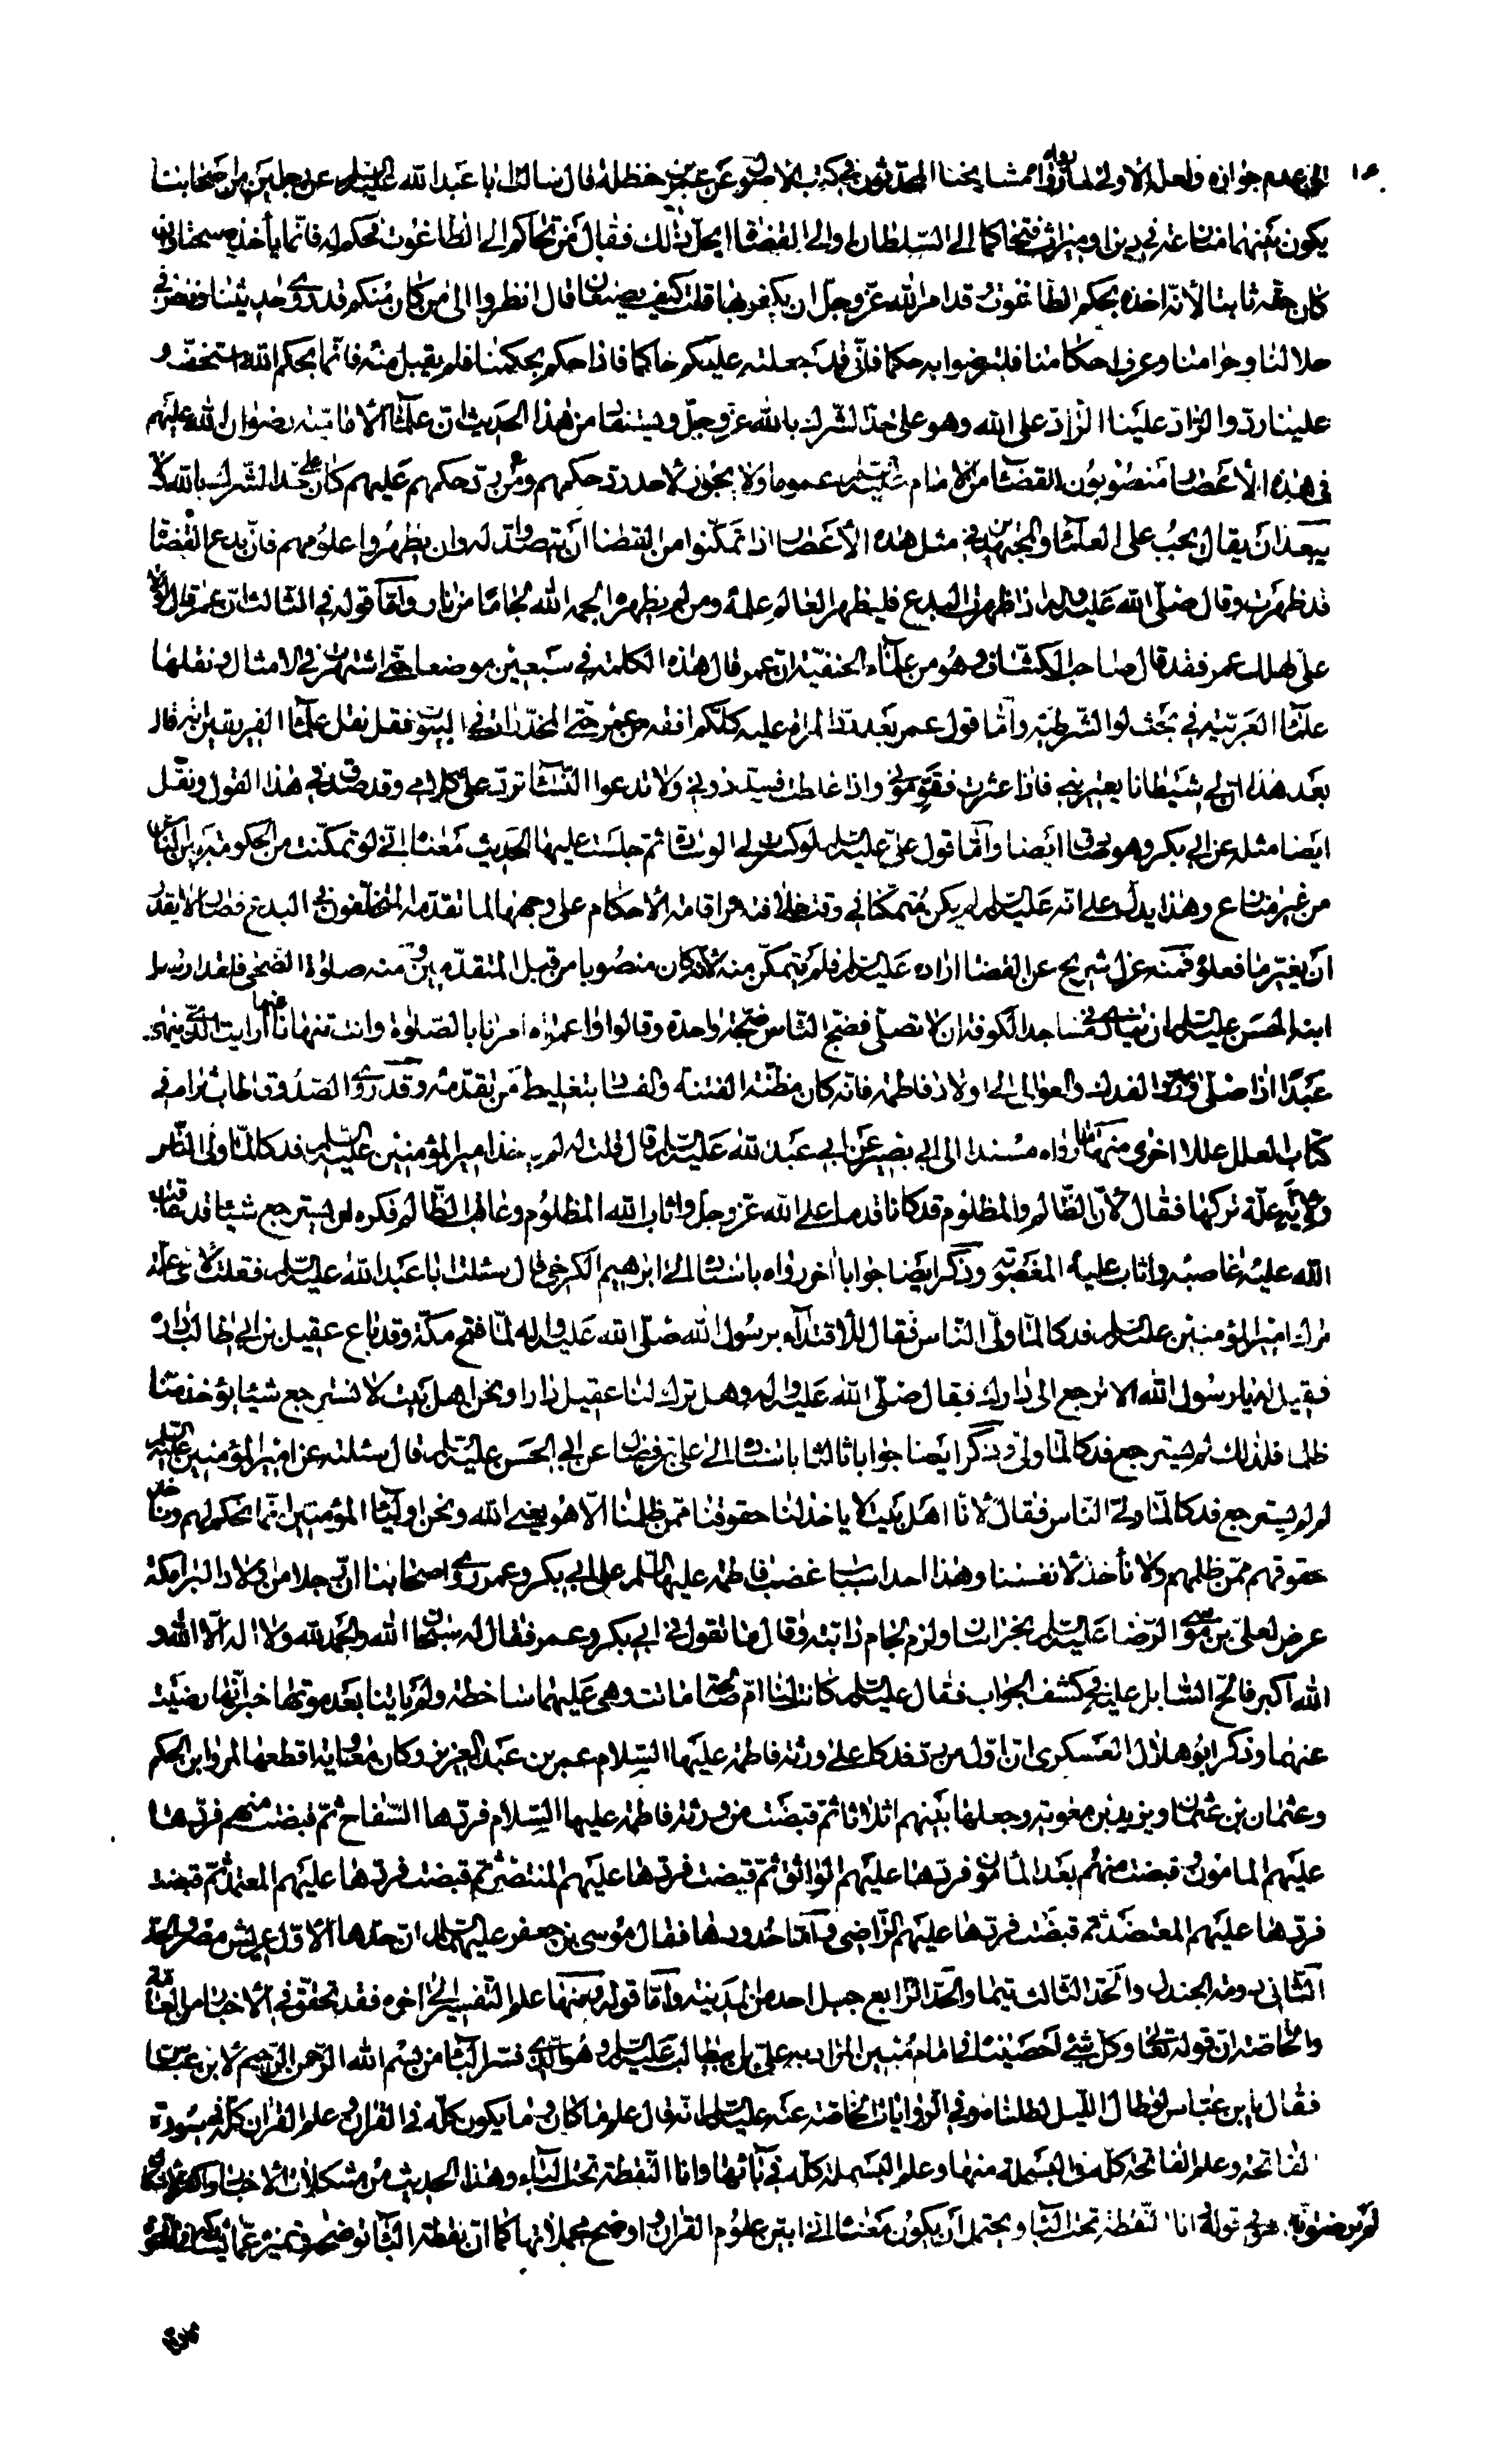 الى عدم جوازه ولعله الاولى لما رواه مشايخنا المحدثون في كتب الاصول عن عمر بن حنظلة قال سالت ابا عبد الله عليه السلم عن رجلين من اصحابنا
يكون بينهما منازعة في دين او ميراث فتحاكما الى السلطان او الى القضاة ايحل ذلك فقال من تحاكم الى الطاغوت فحكم له فانما يأخذ سحتا وان
كان حقه ثابتا لأنه اخذه بحكم الطاغوت وقد امر الله عز وجل ان يكفر بها قلت كيف يصنعان قال انظروا الى من كان منكم قد روى حديثنا ونظر في
حلالنا وحرامنا وعرف احكامنا فليرضوا به حكما فانى قد جعلته عليكم حاكما فاذا حكم بحكمنا فلم يقبل منه فانما بحكم الله استخف و
علينا رد والراد علينا الراد على الله وهو على حد الشرك بالله عز وجل ويستفاد من هذا الحديث ان علمآء الأمامية رضوان الله عليهم
في هذه الأعصار منصوبون للقضاء من الامام عليه السلم عموما ولا يجوز لأحد رد حكمهم ومن يرد حكمهم عليهم كان على حد الشرك بالله ولا
يبعد ان يقال يجب على العلمآء والمجتهدين في مثل هذه الأعصار اذا تمكنوا من القضاء ان يتصدوا له وان يظهروا علومهم فان بدع القضاء
قد ظهرت وقال صلى الله عليه واله اذا ظهرت البدع فليظهر العالم علمه ومن لم يظهره الجمه الله لجاما من نار وامّا قوله في الثالث ان عمر قال لولا
على لهلك عمر فقد قال صاحب الكشاف وهو من علمآء الحنفية ان عمر قال هذه الكلمة في سبعين موضعا حتى اشتهرت في الامثال ونقلها
علمآء العربية في بحث لو الشرطية وامّا قول عمر بعد رد المرأة عليه كلكم افقه من عمر حتى المخدرات في البيوت فقد نقل علمآء الفريقين انه قال
بعد هذا ان لي شيطانا يعتريني فاذا عثرت فقوموني واذا غلطت فسددوني ولا تدعوا النسآء ترد على كلامي وقد صدق في هذا القول ونقل
ايضا مثله عن ابي بكر وهو صادق ايضا وامّا قول على عليه السلم لو كسرت لي الوسادة ثم جلست عليها الحديث معناه انى لو تمكنت من الحكومة بين الناس
من غير منازع وهذا يدل على انه عليه السلم لم يكن متمكنا في وقت خلافته من اقامة الأحكام على وجهها لما تقدمه المتخلفون في البدع فصار لا يقدر
ان يغير ما فعلوه فمنه عزل شريح عن القضاء اراده عليه السلم فلم يتمكن منه لأنه كان منصوبا من قبل المتقدمين ومنه صلوة الضحى فلقد ارسل
ابنه الحسن عليه السلم ان ينادى في مساجد الكوفة ان لا تصلى فضج الناس ضجة واحدة وقالوا وا عمراه امرنا بالصلوة وانت تنهانا عنها ارايت الذى ينهى
عبدا اذا صلى ومنه الفدك والعوالى الى اولاد فاطمة فانه كان مظنة الفتنة والفساد بتغليط من تقدمه وقد روى الصدوق طاب ثراه في
كتاب العلل عللا اخرى منها ما رواه مسندا الى ابي بصير عن ابي عبد الله عليه السلم قال قلت له لم لم يأخذ امير المؤمنين عليه السلم فدكا لما ولى الناس
ولأي علة تركها فقال لأن الظالم والمظلوم قد كانا قدما على الله عز وجل واثاب الله المظلوم وعاقب الظالم فكره ان يسترجع شيئا قد عاقب
الله عليه غاصبه واثاب عليه المغصوبة وذكر ايضا جوابا اخر رواه باسناده الى ابرهيم الكرخى قال سئلت ابا عبد الله عليه السلم فقلت لأى علة
ترك امير المؤمنين عليه السلم فدكا لما ولى الناس فقال للأقتدآء برسول الله صلى الله عليه واله لما فتح مكة وقد باع عقيل بن ابي طالب داره
فقيل له يا رسول الله الا ترجع الى دارك فقال صلى الله عليه واله وهل ترك لنا عقيل دارا ونحن اهل بيت لا نسترجع شيئا يؤخذ منا
ظلما فلذلك لم يسترجع فدكا لما ولى وذكر ايضا جوابا ثالثا باسناده الى على بن فضال عن ابي الحسن عليه السلم قال سئلته عن امير المؤمنين عليه السلم
لم لم يسترجع فدكا لما ولى الناس فقال لأنا اهل بيت لا ياخذ لنا حقوقنا ممن ظلمنا الا هو يعنى الله ونحن اوليآء المؤمنين انما نحكم لهم وناخذ
حقوقهم ممن ظلمهم ولا نأخذ لأنفسنا وهذا احد اسباب غضب فاطمة عليها السلم على ابي بكر وعمر روى اصحابنا ان رجلا من اولاد البرامكة
عرض لعلى بن موسى الرضا عليه السلم بخراسان ولزم لجام دابته وقال ما تقول في ابي بكر وعمر فقال له سبحان الله والحمد لله ولا اله الا الله و
الله اكبر فالح السائل عليه في كشف الجواب فقال عليه السلم كانت لنا ام صالحة ماتت وهى عليهما ساخطة ولم يأتنا بعد موتها خبر انها رضيت
عنهما وذكر ابو هلال العسكرى ان اول من رد فدكا على ورثة فاطمة عليها السلام عمر بن عبد العزيز وكان معوية اقطعها لمروان بن الحكم
وعثمان بن عثمان ويزيد بن معوية وجعلها بينهم اثلاثا ثم قبضت من ورثة فاطمة عليها السلام فردها السفاح ثم قبضت منهم فردها
عليهم المامون ثم قبضت منهم بعد المأمون فردها عليهم الواثق ثم قبضت فردها عليهم المنتصر ثم قبضت فردها عليهم المعتمد ثم قبضت
فردها عليهم المعتضد ثم قبضت فردها عليهم الراضى وامّا حدودها فقال موسى بن جعفر عليهما السلام ان حدها الأول عريش مصر والحد
الثاني دومة الجندل والحد الثالث تيما والحد الرابع جبل احد من المدينة وامّا قوله ومنها علم التفسير الى اخره فقد تحقق في الأخبار من العامة
والخاصة ان قوله تعالى وكل شئ احصيناه في امام مبين المراد به على بن ابي طالب عليه السلم وهو الذى فسر البآء من بسم الله الرحمن الرحيم لابن عباس
فقال ابن عباس لو طال الليل لطلنا وفي الروايات الخاصة عنه عليه السلم انه قال علم ما كان وما يكون كله في القران وعلم القران كله في سورة
الفاتحة وعلم الفاتحة كله في البسملة منها وعلم البسملة كله في بآئها وانا النقطة تحت الباء وهذا الحديث من مشكلات الأخبار
قوله انا النقطة تحت البآء ويحتمل ان يكون معناه انى ابين علوم القران واوضح مجملاتها كما ان نقطة البآء توضحه وتميزه عما يشاركه